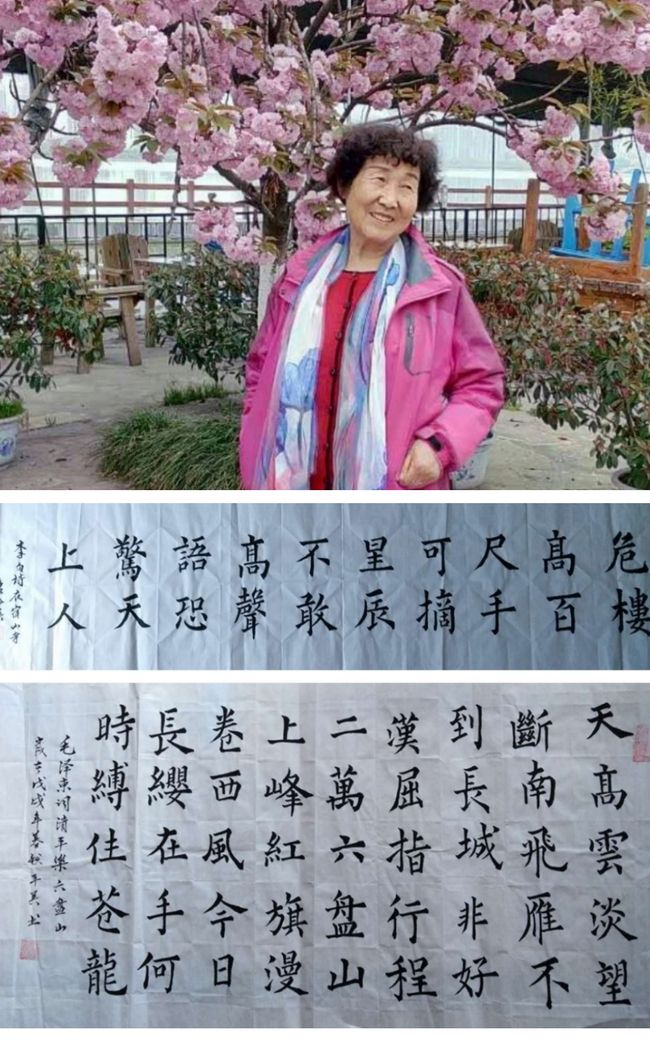 危樓
髙百
尺手
可摘
星辰
不敢
髙聲
語恐
驚天
上人
李白詩夜宿山寺
天髙雲淡望
斷南飛雁不
到長城非好
漢屈指行程
二萬六盘山
上峰紅旗漫
卷西風今日
長纓在手何
時縛住苍龍
毛泽東词清平樂六盘山
戊戌年暮秋